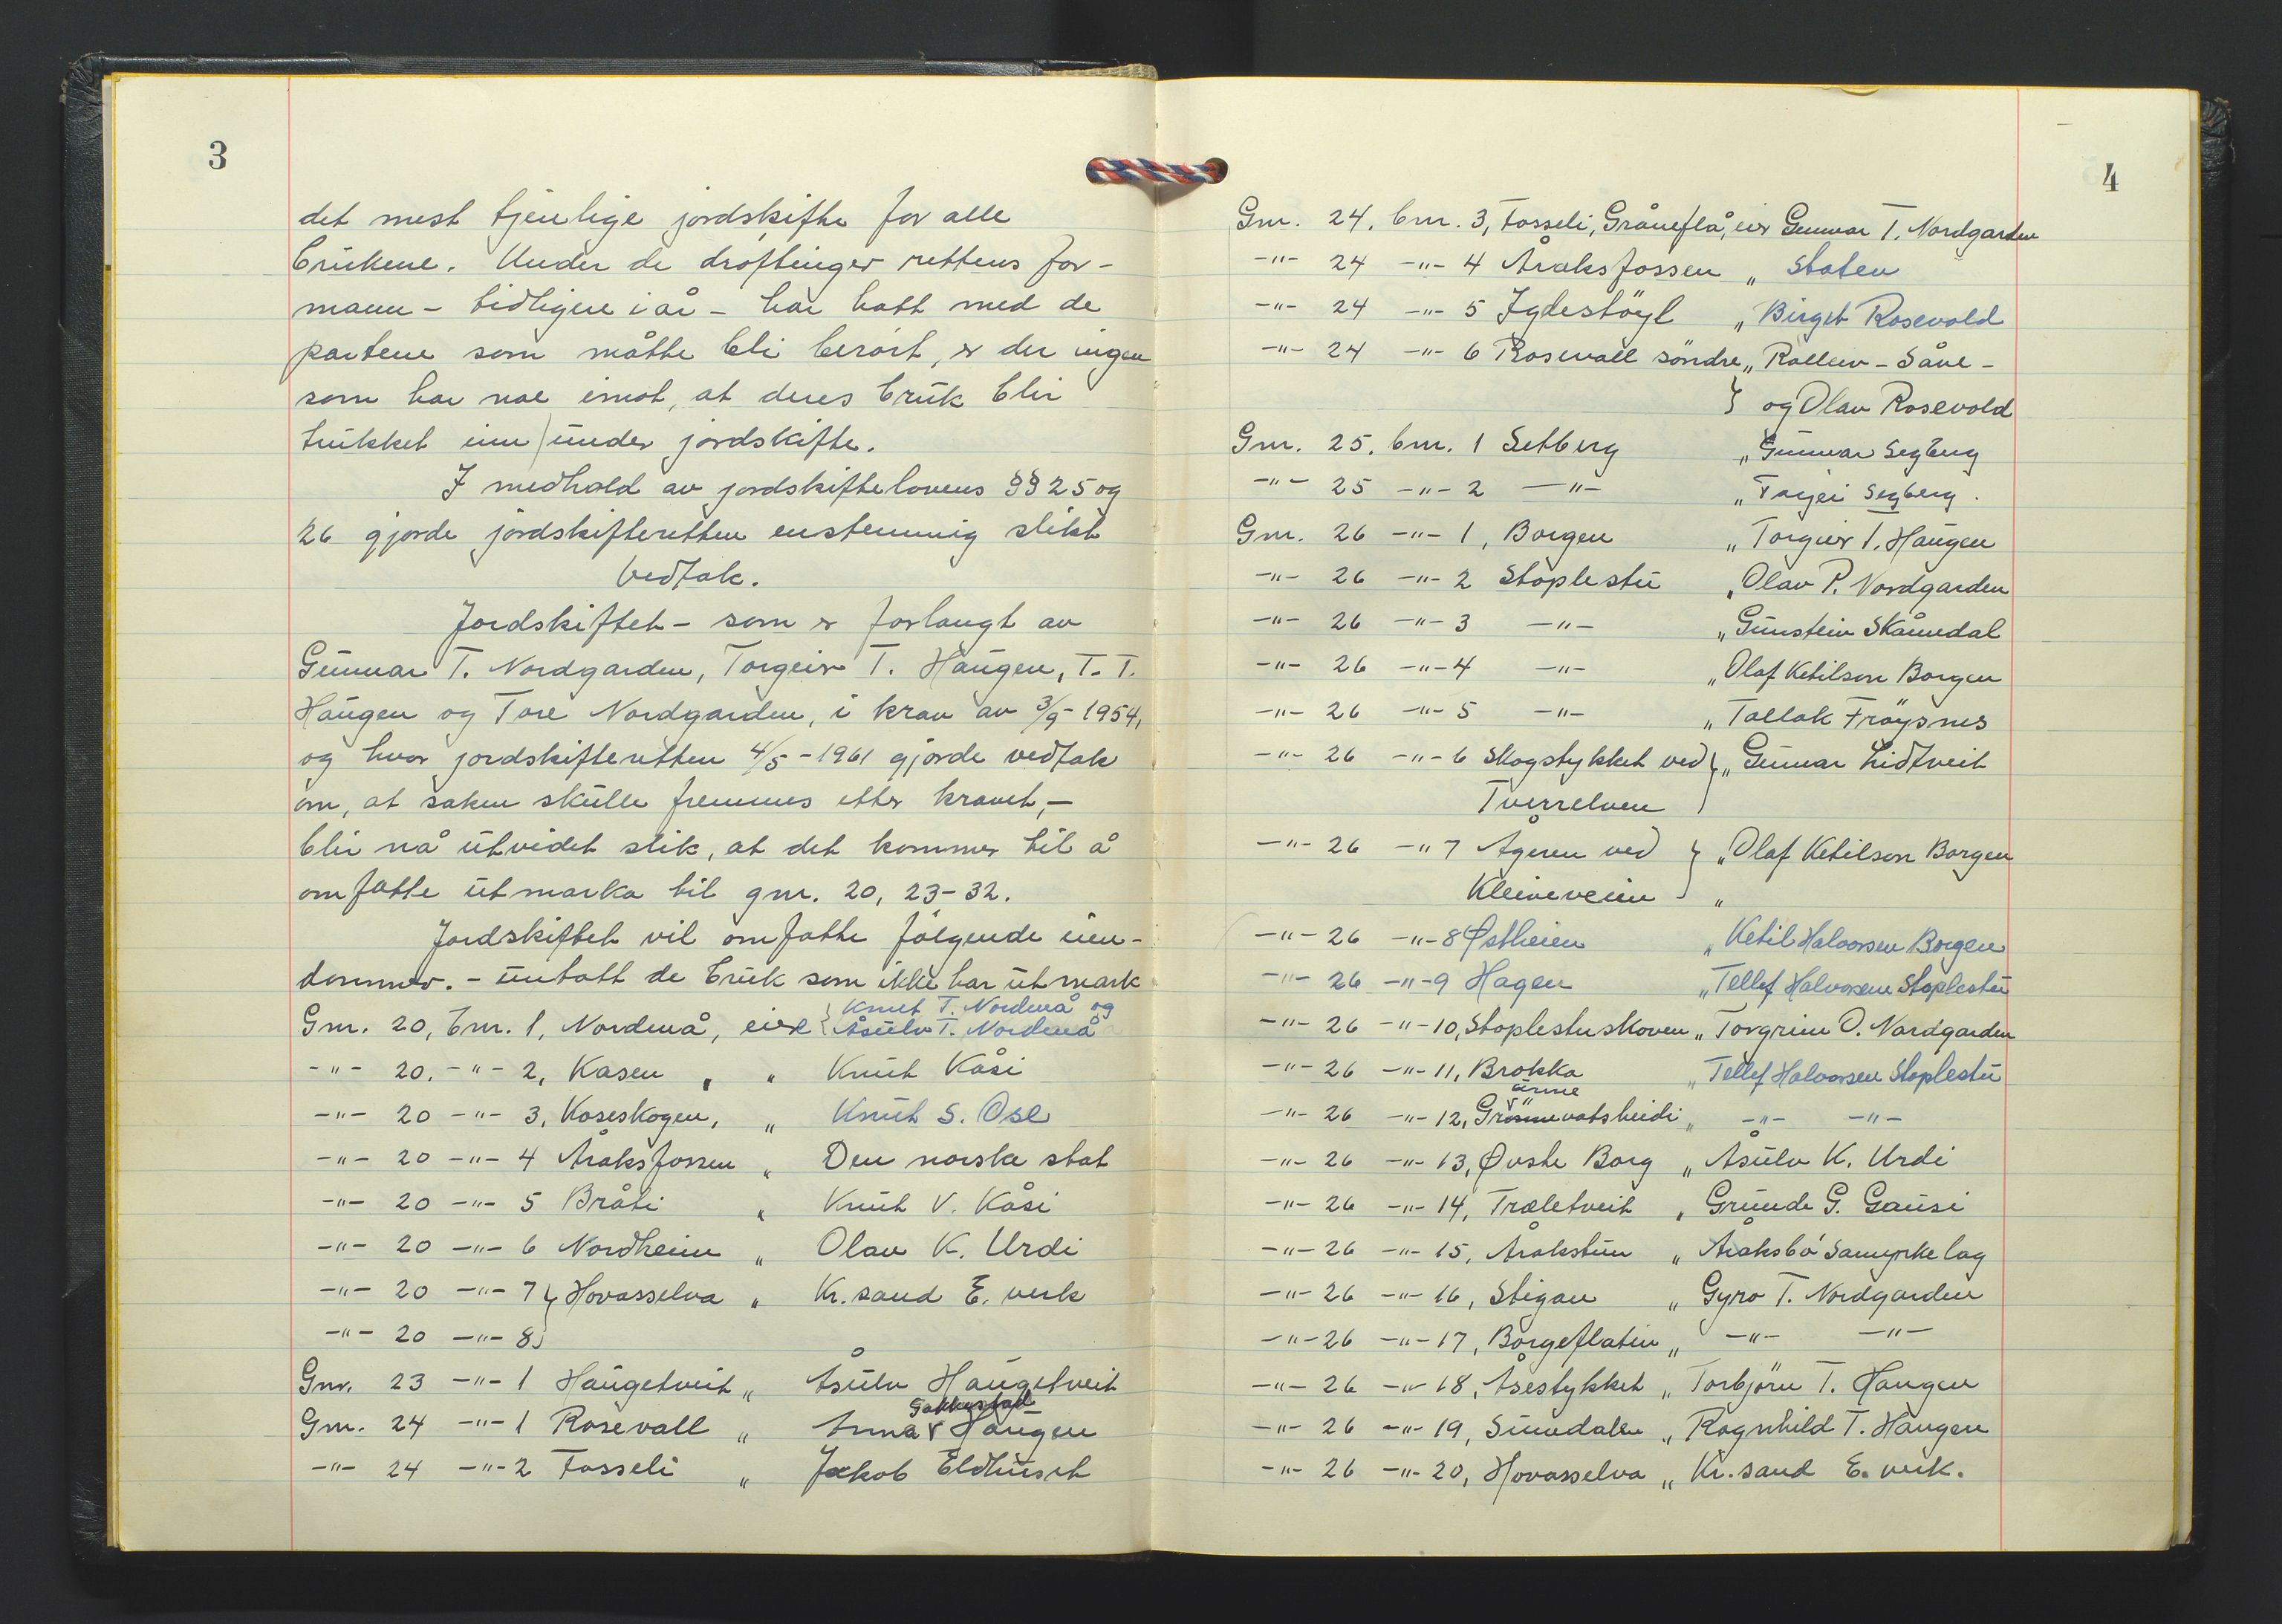 3
det mest tjenlige jordskifte for alle
brukene. Under de drøftinger rettens for-
mann - tidligere i år - har hatt med de
partene som måtte bli berørt, er der ingen
som har noe imot, at deres bruk blir
trukket inn under jordskifte.
I medhold av jordskiftelovens §§ 25 og
26 gjorde jordskifteretten enstemmig slikt
vedtak.
Jordskiftet - som er forlangt av
Gunnar T. Nordgarden, Torgeir T. Haugen, T. T.
Haugen og Tore Nordgarden, i krav av 3/9-1954,
og hvor jordskifteretten 4/5-1961 gjorde vedtak
om, at saken skulle fremmes etter kravet, -
blir nå utvidet slik, at det kommer til å
omfatte utmarka til gnr. 20, 23-32.
Jordskiftet vil omfatte følgende eien-
dommer. - untatt de bruk som ikke har utmark
Knut T. Nordnå og
Gnr. 20, bnr. 1, Nordnå, eier { Åsulv T. Nordnå
-"- 20. -"- 2, Kasen, " Knut Kåsi
-"- 20 -"- 3, Koseskogen, " Knut S. Ose
-"- 20 -"- 4 Åraksfossen " Den norske stat
-"- 20 -"- 5 Bråti " Knut V. Kåsi
-"- 20 -"- 6 Nordheim " Olav K. Urdi
-"- 20 -"- 7 } Hovasselva " Kr.sand E. verk
-"- 20 -"- 8 }
Gnr. 23 -"- 1 Haugetveit " Åsulv Haugetveit
Gnr. 24 -"- 1 Rosevall " Anna Haugen
-"- 24 -"- 2 Fosseli " Jakob Eldhuset
4
Gnr. 24, bnr. 3, Fosseli, Gråneflå, eier Gunnar T. Nordgarden
-"- 24 -"- 4 Åraksfossen " Staten
-"- 24 -"- 5 Igdestøyl " Birgit Rosevold
-"- 24 -"- 6 Rosevall søndre " Rollew - Såve -
} og Olav Rosevold
Gnr. 25, bnr. 1 Setberg " Gunnar Segberg
-"- 25 -"- 2 -"- " Torjei Segberg.
Gnr. 26 -"- 1, Borgen " Torgeir T. Haugen
-"- 26 -"- 2 Stoplestu " Olav P. Nordgarden
-"- 26 -"- 3 -"- " Gunstein Skåmedal
-"- 26 -"- 4 -"- " Olaf Ketilson Borgen
-"- 26 -"- 5 -"- " Tallak Frøysnes
-"- 26 -"- 6 Skogstykket ved } " Gunnar Lidtveit
Tverrelven }
-"- 26 -" 7 Ågeren ved } " Olaf Ketilson Borgen
Kleiveveien } "
-"- 26 -"- 8 Østheien " Ketil Halvorsen Borgen
-"- 26 -"- 9 Hagen " Tellef Halvorsen Stoplestu
-"- 26 -"- 10, Stoplestuskoven " Torgrim O. Nordgarden
-"- 26 -"- 11, Brokka " Tellef Halvorsen Stoplestu
änne
-"- 26 -"- 12, Grønnevatsheidi " -"- -"-
-"- 26 -"- 13, Øvste Borg " Åsulv K. Urdi
-"- 26 -"- 14, Træletveit " Grunde G. Gausi
-"- 26 -"- 15, Årakstun " Araksbø Samyrkelag
-"- 26 -"- 16, Stigan " Gyro T. Nordgarden
-"- 26 -"- 17, Borgeflatin " -"- -"-
-"- 26 -"- 18, Åsestykket " Torbjørn T. Haugen
-"- 26 -"- 19, Sundalen " Ragnhild T. Haugen
-"- 26 -"- 20, Hovasselva " Kr.sand E. verk.